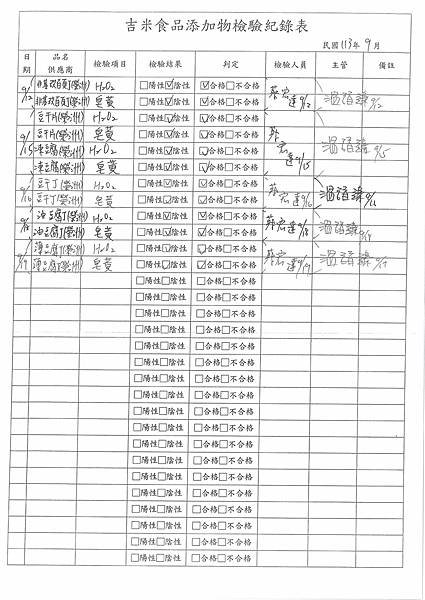 吉米食品添加物檢驗紀錄表
民國 113年 9月
日期 品名 供應商 檢驗項目 檢驗結果 判定 檢驗人員 主管 備註
9/12 非基改百頁(榮洲) H2O2 □陽性☑陰性 ☑合格□不合格
非基改百頁(榮洲) 皂黃 □陽性☑陰性 ☑合格□不合格 9/12 9/12
豆干片(榮洲) H2O2 □陽性☑陰性 ☑合格□不合格
豆干片(榮洲) 皂黃 □陽性☑陰性 ☑合格□不合格
9/15 凍豆腐(榮洲) H2O2 □陽性☑陰性 ☑合格□不合格 9/15
凍豆腐(榮洲) 皂黃 □陽性☑陰性 ☑合格□不合格 9/15
9/16 豆干丁(榮洲) H2O2 □陽性☑陰性 ☑合格□不合格
豆干丁(榮洲) 皂黃 □陽性☑陰性 ☑合格□不合格 9/16
9/18 油豆腐丁(榮洲) H2O2 □陽性☑陰性 ☑合格□不合格
油豆腐丁(榮洲) 皂黃 □陽性☑陰性 ☑合格□不合格 9/18
9/19 凍豆腐(榮洲) H2O2 □陽性☑陰性 ☑合格□不合格
凍豆腐(榮洲) 皂黃 □陽性☑陰性 ☑合格□不合格 9/19
□陽性□陰性 □合格□不合格
□陽性□陰性 □合格□不合格
□陽性□陰性 □合格□不合格
□陽性□陰性 □合格□不合格
□陽性□陰性 □合格□不合格
□陽性□陰性 □合格□不合格
□陽性□陰性 □合格□不合格
□陽性□陰性 □合格□不合格
□陽性□陰性 □合格□不合格
□陽性□陰性 □合格□不合格
□陽性□陰性 □合格□不合格
□陽性□陰性 □合格□不合格
□陽性□陰性 □合格□不合格
□陽性□陰性 □合格□不合格
□陽性□陰性 □合格□不合格
□陽性□陰性 □合格□不合格
□陽性□陰性 □合格□不合格
□陽性□陰性 □合格□不合格